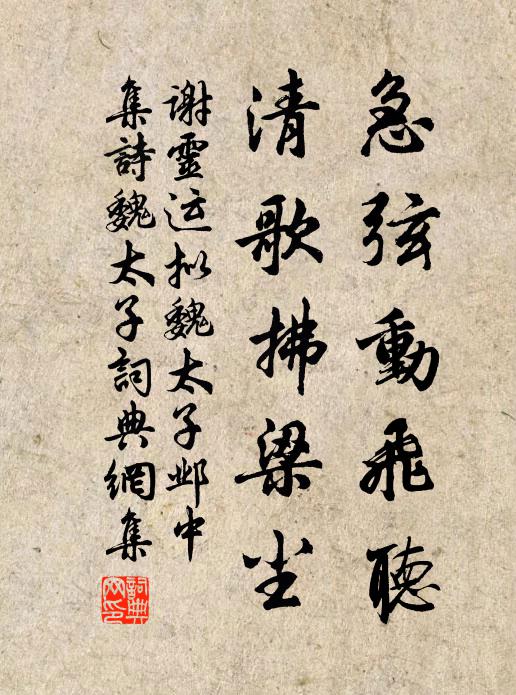 急弦動飛聽
清歌拂梁尘
謝靈运拟魏太子邺中
集詩魏太子詞典網集
詞典网印